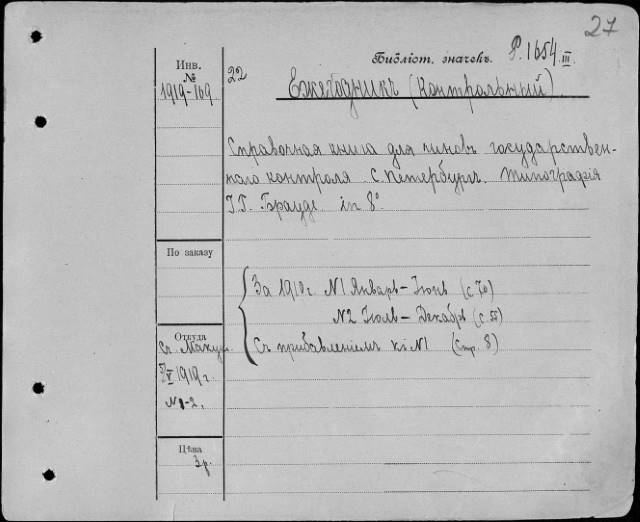 27
Библіот. значекъ. P. 1654 III.
Инв.
№
1919-169
22
Ежегодникъ (Контрольный).
Справочная книга для чиновъ государствен-
наго контроля С. Петербургъ. Типографія
Г. Брауде. in 8°
По заказу
За 1910 г. №1 Январь – Іюнь (с. 70)
№2 Іюль – Декабрь (с. 55)
Съ прибавленіемъ къ №1 (стр. 8)
Откуда
V 1919 г.
Цѣна
3 р.